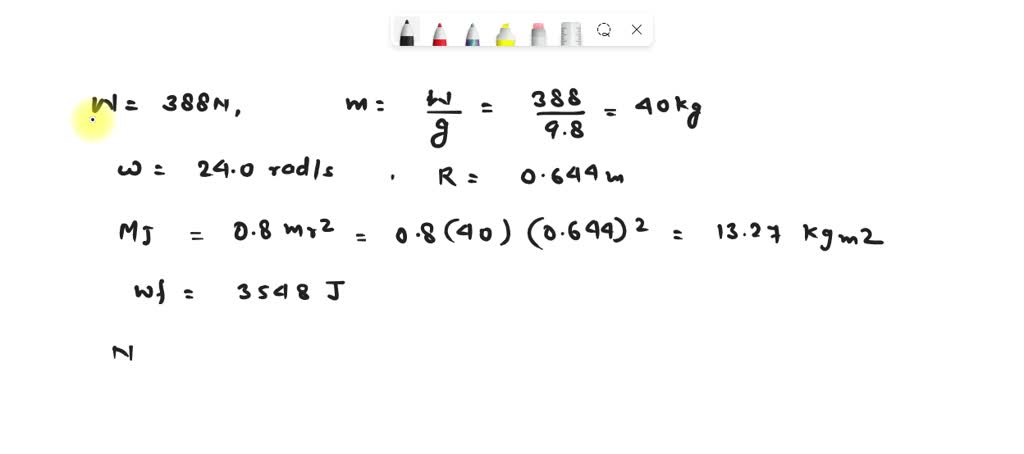 W = 388N, m = W/g = 388/9.8 = 40kg
ω = 24.0 rad/s , R = 0.644m
MJ = 0.8 mr2 = 0.8(40) (0.644)2 = 13.27 kgm2
Wf = 3548 J
N